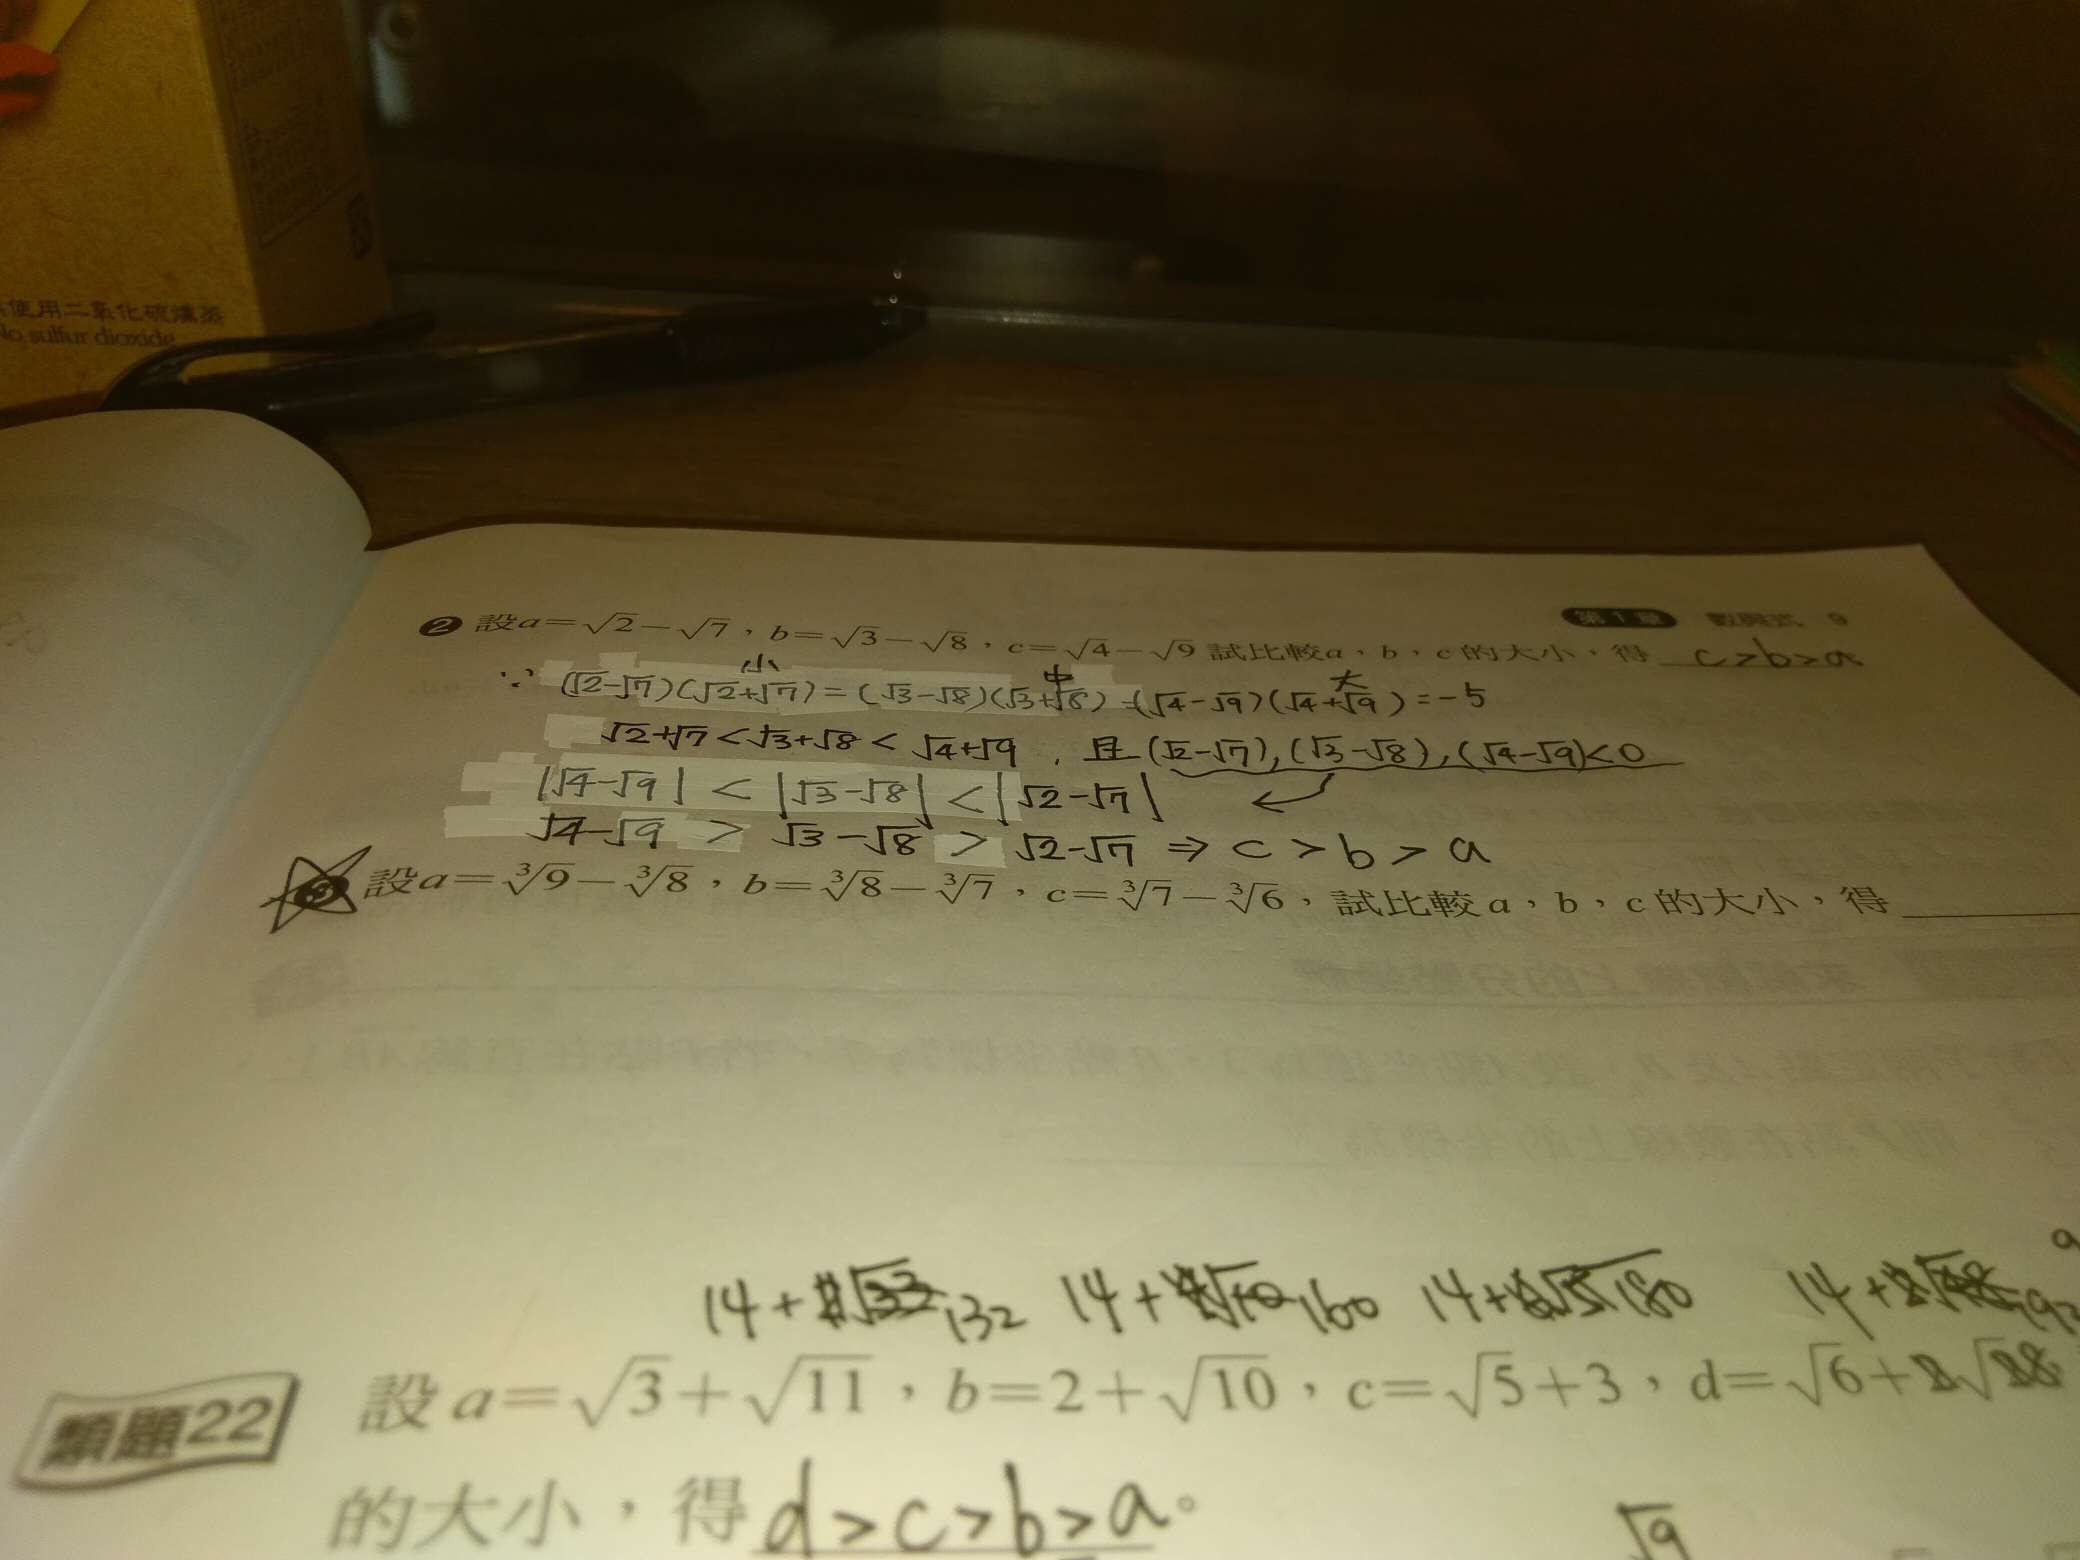 使用二氧化硫燻蒸
No sulfur dioxide
第1章 數與式 9
❷ 設a=√2−√7，b=√3−√8，c=√4−√9 試比較a，b，c的大小，得 c>b>a
小 中 大
∵ (√2−√7)(√2+√7)=(√3−√8)(√3+√8)=(√4−√9)(√4+√9)=−5
√2+√7<√3+√8<√4+√9，且(√2−√7),(√3−√8),(√4−√9)<0
|√4−√9|<|√3−√8|<|√2−√7| ←
√4−√9>√3−√8>√2−√7⇒c>b>a
❸ 設a=∛9−∛8，b=∛8−∛7，c=∛7−∛6，試比較a，b，c的大小，得
14+ 132 14+ 160 14+ 180 14+
類題22 設a=√3+√11，b=2+√10，c=√5+3，d=√6+
的大小，得d>c>b>a。
√9